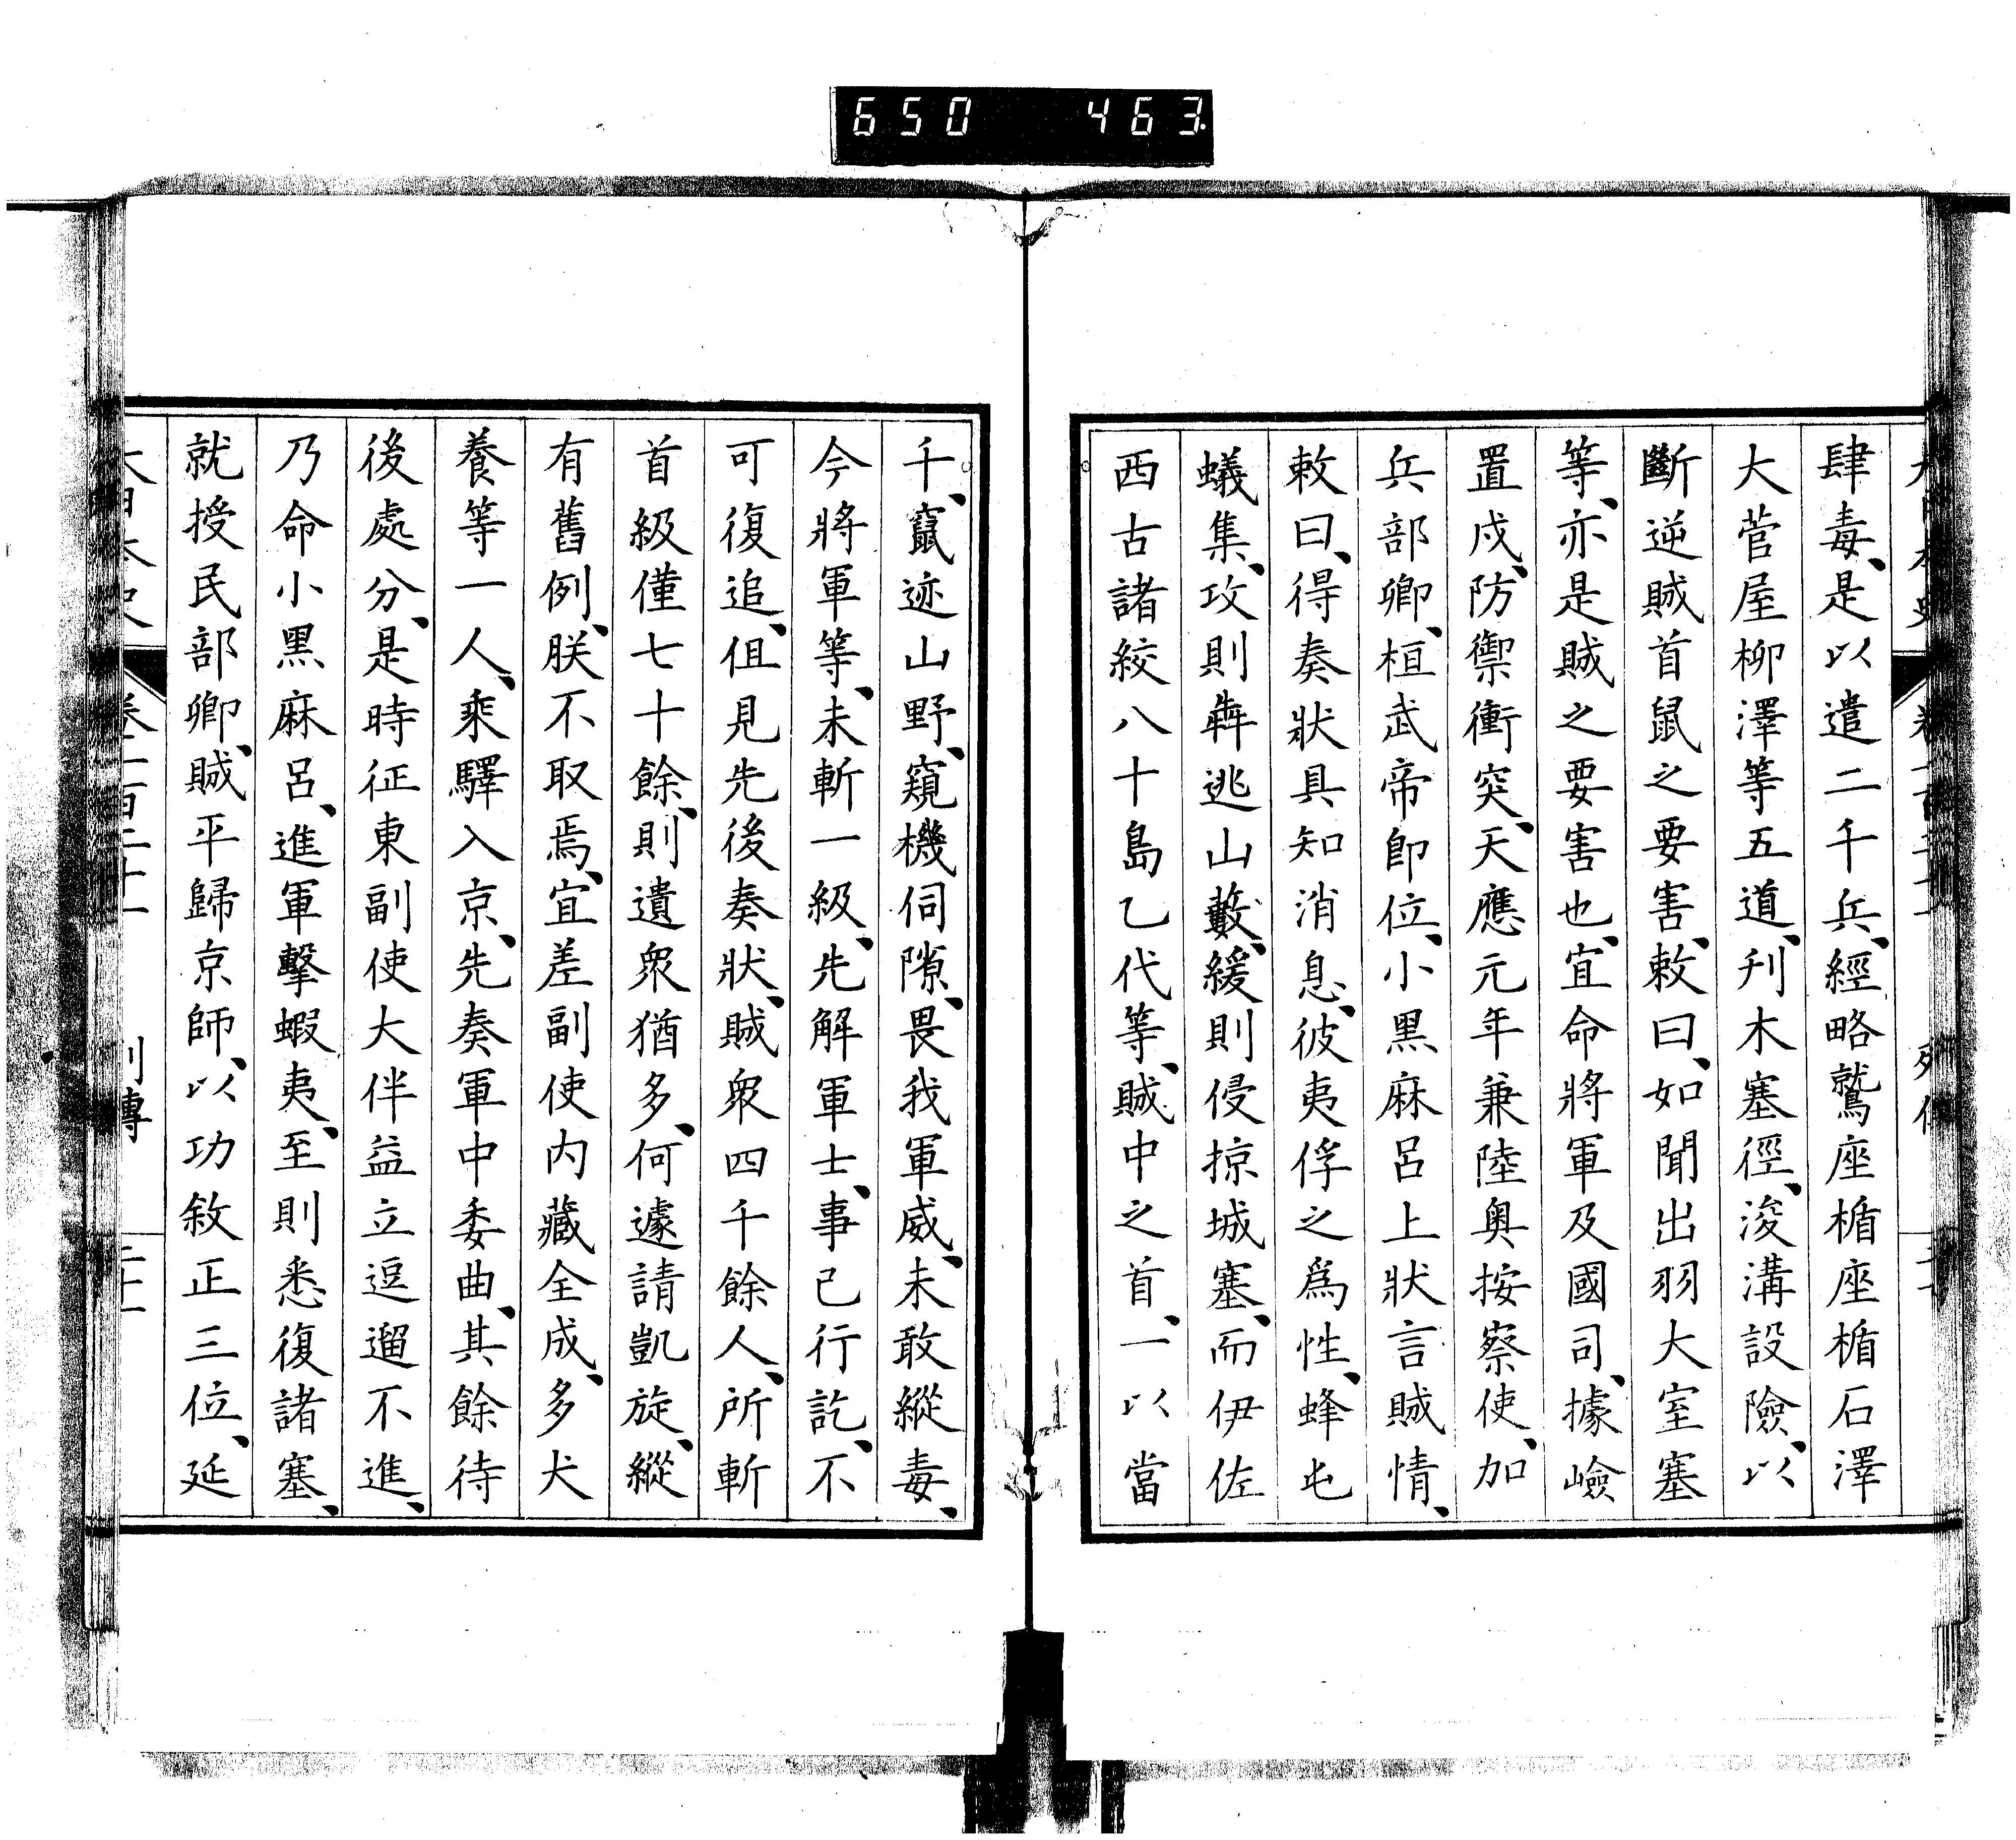 650 463
肆毒、是以遣二千兵、經略鷲座楯座楯石澤
大菅屋柳澤等五道、刋木塞徑、浚溝設險、以
斷逆賊首鼠之要害、敕曰、如聞出羽大室塞
等、亦是賊之要害也、宜命將軍及國司、據嶮
置戍、防禦衝突、天應元年兼陸奥按察使、加
兵部卿、桓武帝卽位、小黑麻呂上狀言賊情、
敕曰、得奏狀具知消息、彼夷俘之爲性、蜂屯
蟻集、攻則犇逃山藪、緩則侵掠城塞、而伊佐
西古諸絞八十島乙代等、賊中之首、一以當
千、竄迹山野、窺機伺隙、畏我軍威、未敢縱毒、
今將軍等、未斬一級、先解軍士、事已行訖、不
可復追、但見先後奏狀、賊衆四千餘人、所斬
首級僅七十餘、則遺衆猶多、何遽請凱旋、縱
有舊例、朕不取焉、宜差副使内藏全成、多犬
養等一人、乘驛入京、先奏軍中委曲、其餘待
後處分、是時征東副使大伴益立逗遛不進、
乃命小黑麻呂、進軍擊蝦夷、至則悉復諸塞、
就授民部卿、賊平歸京師、以功敘正三位、延